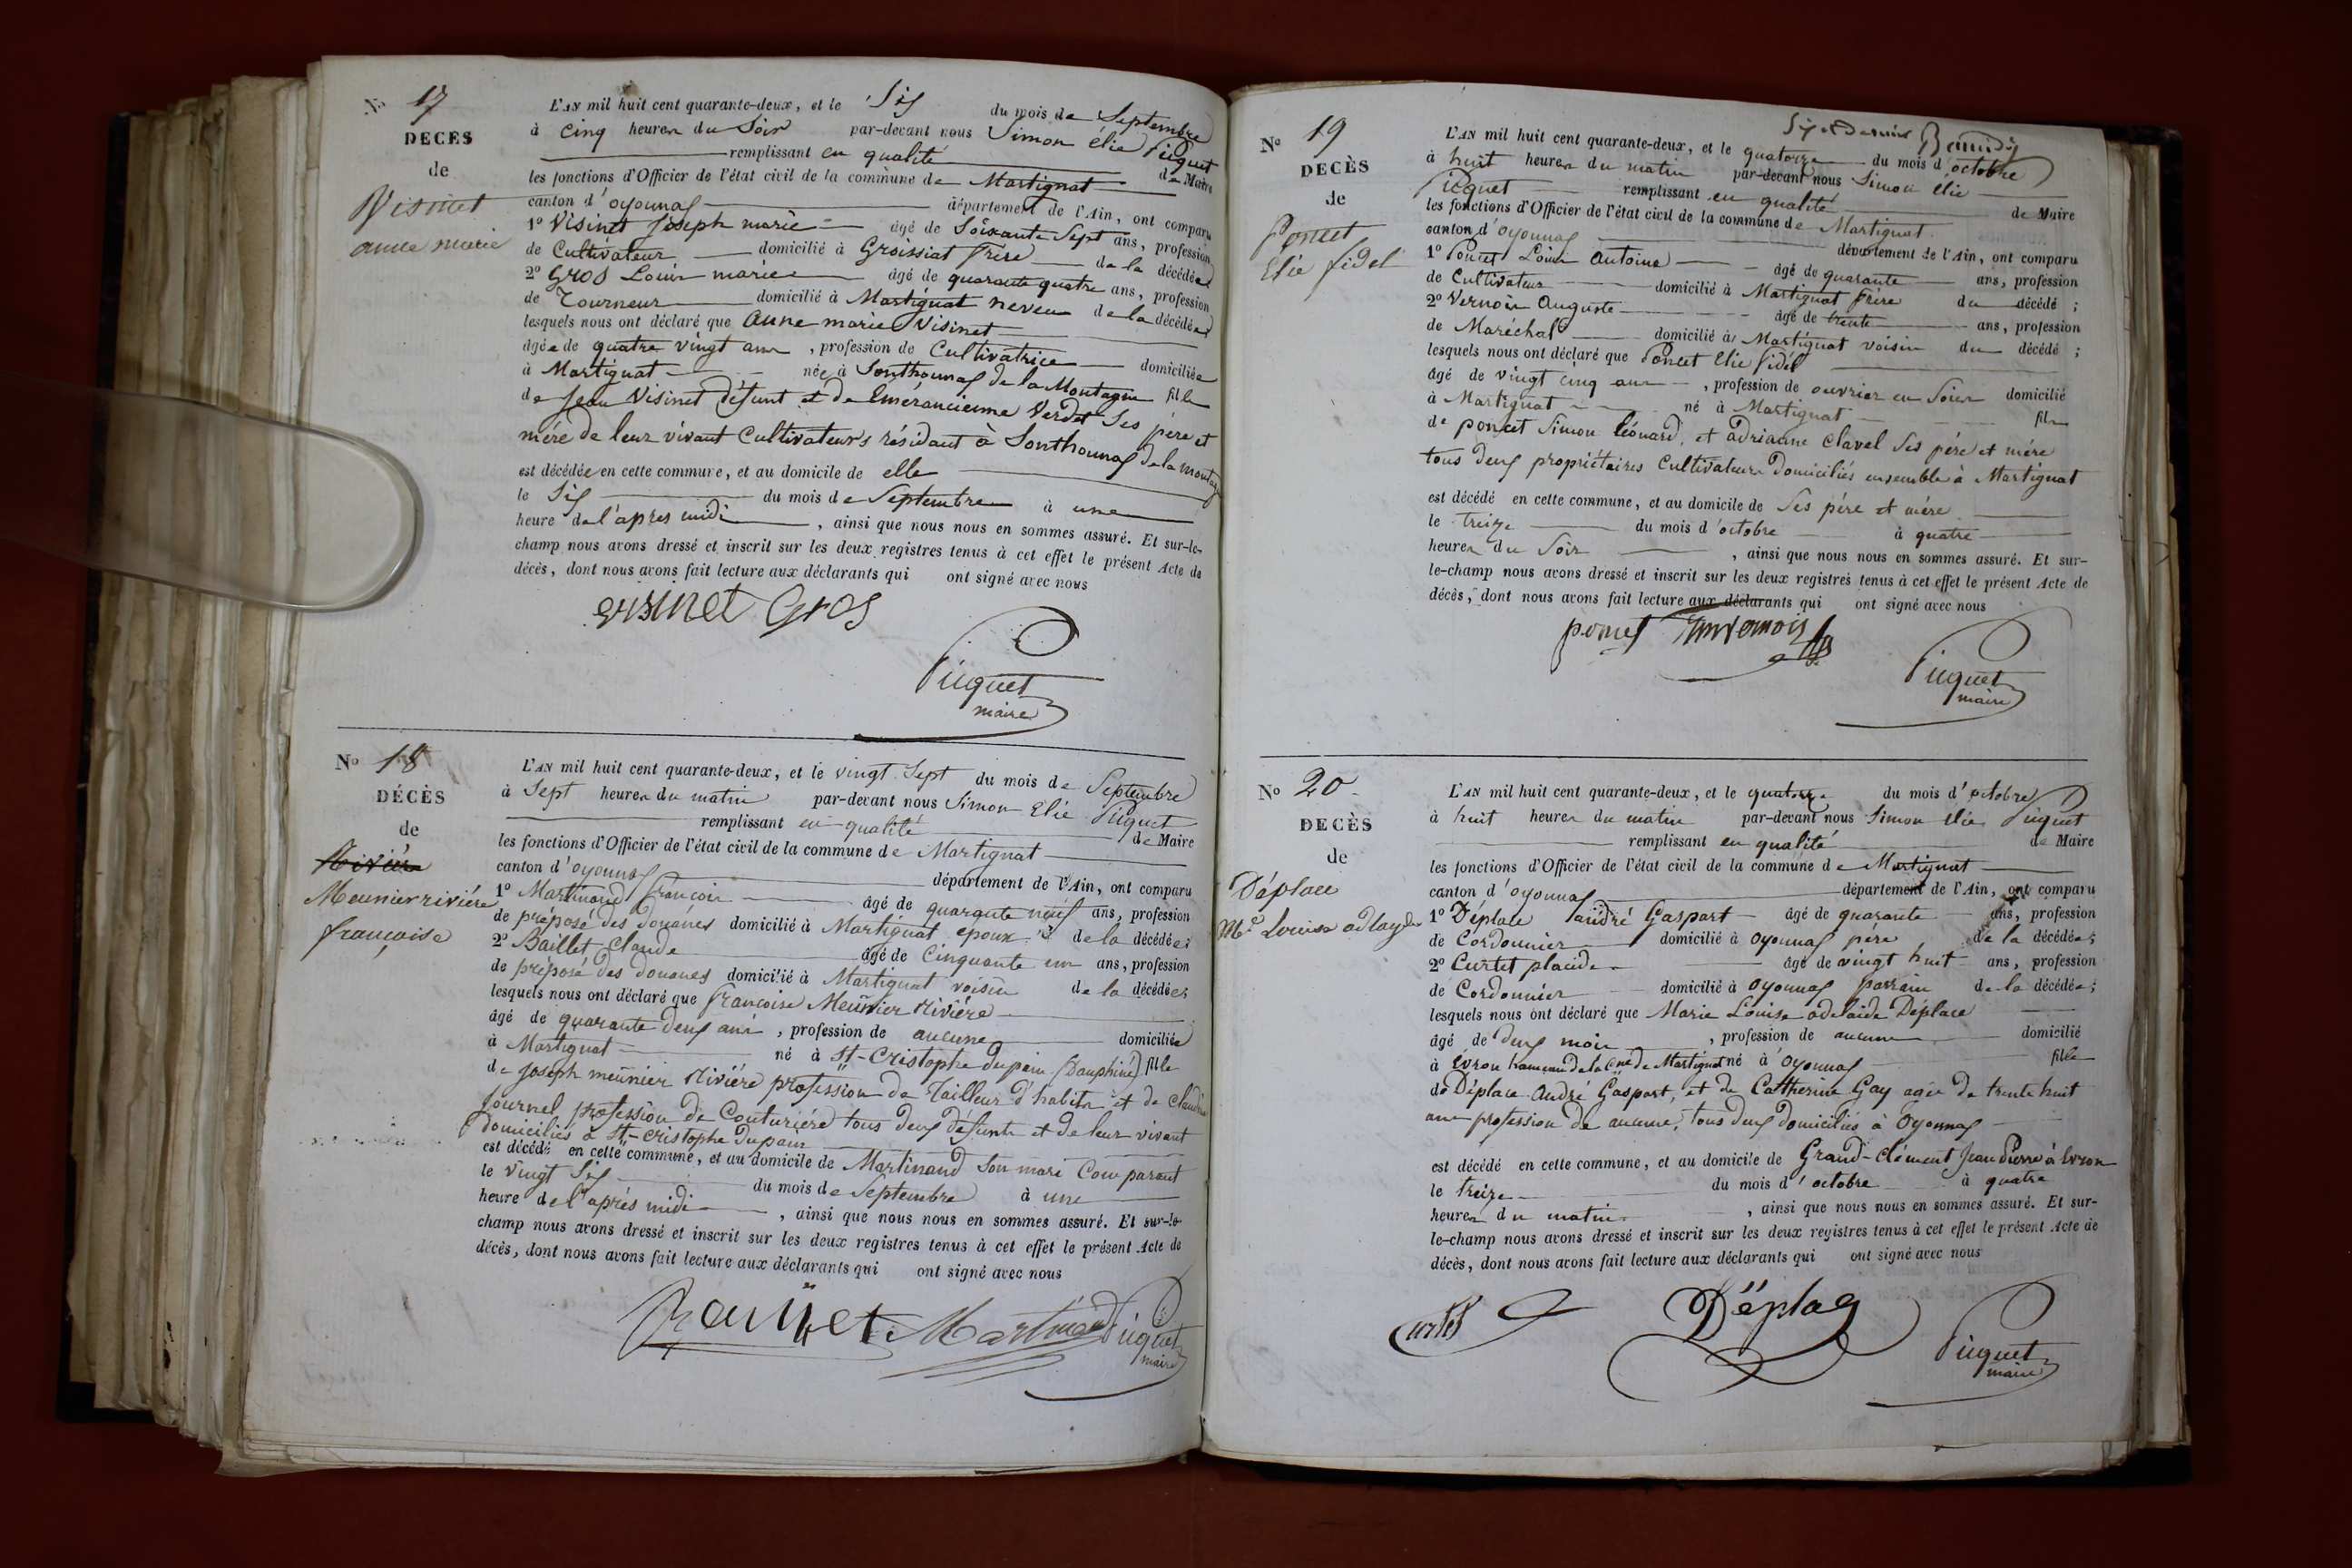 No 17
DECES
de
Visinet
anne marie
L'AN mil huit cent quarante-deux, et le Six du mois de Septembre
à cinq heures du Soir par-devant nous Simon élie Piquet
remplissant en qualité de Maire
les fonctions d'Officier de l'état civil de la commune de Martignat
canton d'oyonnax département de l'Ain, ont comparu
1o Visinet Joseph marie âgé de Soixante Sept ans, profession
de Cultivateur domicilié à Groissiat frère de la décédée
2o Gros Louis marie âgé de quarante quatre ans, profession
de Tourneur domicilié à Martignat neveu de la décédée
lesquels nous ont déclaré que anne marie Visinet
âgée de quatre vingt ans, profession de Cultivatrice domiciliée
à Martignat née à Sonthonnax de la Montagne fille
de Jean Visinet défunt et de Emérancienne Verdet Ses père et
mère de leur vivant Cultivateurs résidant à Sonthonnax de la montagne
est décédée en cette commune, et au domicile de elle
le Six du mois de Septembre à une
heure de l'apres midi, ainsi que nous nous en sommes assuré. Et sur-le-
champ nous avons dressé et inscrit sur les deux registres tenus à cet effet le présent Acte de
décès, dont nous avons fait lecture aux déclarants qui ont signé avec nous
visinet Gros
Piquet
maire
No 18
DÉCÈS
de
Rivière
Meunier rivière
françoise
L'AN mil huit cent quarante-deux, et le vingt Sept du mois de Septembre
à Sept heures du matin par-devant nous Simon Elie Piquet
remplissant en qualité de Maire
les fonctions d'Officier de l'état civil de la commune de Martignat
canton d'oyonnax département de l'Ain, ont comparu
1o Martinand françois âgé de quarante neuf ans, profession
de préposé des douanes domicilié à Martignat epoux de la décédée;
2o Baillet Claude âgé de Cinquante un ans, profession
de préposé des douanes domicilié à Martignat voisin de la décédée;
lesquels nous ont déclaré que françoise Meunier Rivière
âgé de quarante deux ans, profession de aucune domiciliée
à Martignat né à St-Cristophe dupin (Dauphiné) fille
de Joseph meunier Rivière profession de Tailleur d'habits et de Claudine
Journel profession de Couturière tous deux défunts et de leur vivant
domiciliés à St-Cristophe Dupain
est décédé en cette commune, et au domicile de Martinand Son mari Comparant
le vingt Six du mois de Septembre à une
heure de l'après midi, ainsi que nous nous en sommes assuré. Et sur-le-
champ nous avons dressé et inscrit sur les deux registres tenus à cet effet le présent Acte de
décès, dont nous avons fait lecture aux déclarants qui ont signé avec nous
Martinand Piquet
maire
No 19
DECÈS
de
Poncet
Elie fidel
L'AN mil huit cent quarante-deux, et le quatorze du mois d'octobre
à huit heures du matin par-devant nous Simon Elie
Piquet remplissant en qualité de Maire
les fonctions d'Officier de l'état civil de la commune de Martignat
canton d'oyonnax département de l'Ain, ont comparu
1o Poncet Louis Antoine âgé de quarante ans, profession
de Cultivateur domicilié à Martignat frère du décédé;
2o Vernois Auguste âgé de trente ans, profession
de Maréchal domicilié à Martignat voisin du décédé;
lesquels nous ont déclaré que Poncet Elie fidel
âgé de vingt cinq ans, profession de ouvrier en Soies domicilié
à Martignat né à Martignat fils
de poncet Simon léonard, et adrianne Clavel Ses père et mère
tous deux propriétaires Cultivateurs Domiciliés ensemble à Martignat
est décédé en cette commune, et au domicile de Ses père et mère
le treize du mois d'octobre à quatre
heures du Soir, ainsi que nous nous en sommes assuré. Et sur-
le-champ nous avons dressé et inscrit sur les deux registres tenus à cet effet le présent Acte de
décès, dont nous avons fait lecture aux déclarants qui ont signé avec nous
poncet
Piquet
maire
No 20
DECÈS
de
Déplace
Mie Louise adlayde
L'AN mil huit cent quarante-deux, et le quatorze du mois d'octobre
à huit heures du matin par-devant nous Simon Elie Piquet
remplissant en qualité de Maire
les fonctions d'Officier de l'état civil de la commune de Martignat
canton d'oyonnax département de l'Ain, ont comparu
1o Déplace andré Gaspart âgé de quarante ans, profession
de Cordonnier domicilié à oyonnax père de la décédée;
2o Curtet placide âgé de vingt huit ans, profession
de Cordonnier domicilié à oyonnax parrain de la décédée;
lesquels nous ont déclaré que Marie Louise adelaide Déplace
âgé de deux mois, profession de aucune domicilié
à Evron hameau de la Cne de Martignat né à oyonnax fille
de Déplace André Gaspart, et de Catherine Gay agée de trente huit
ans profession de aucune, tous deux domiciliés à Oyonnax
est décédé en cette commune, et au domicile de Grand-Clément Jean Pierre à Evron
le treize du mois d'octobre à quatre
heures du matin, ainsi que nous nous en sommes assuré. Et sur-
le-champ nous avons dressé et inscrit sur les deux registres tenus à cet effet le présent Acte de
décès, dont nous avons fait lecture aux déclarants qui ont signé avec nous
Déplace
Piquet
maire